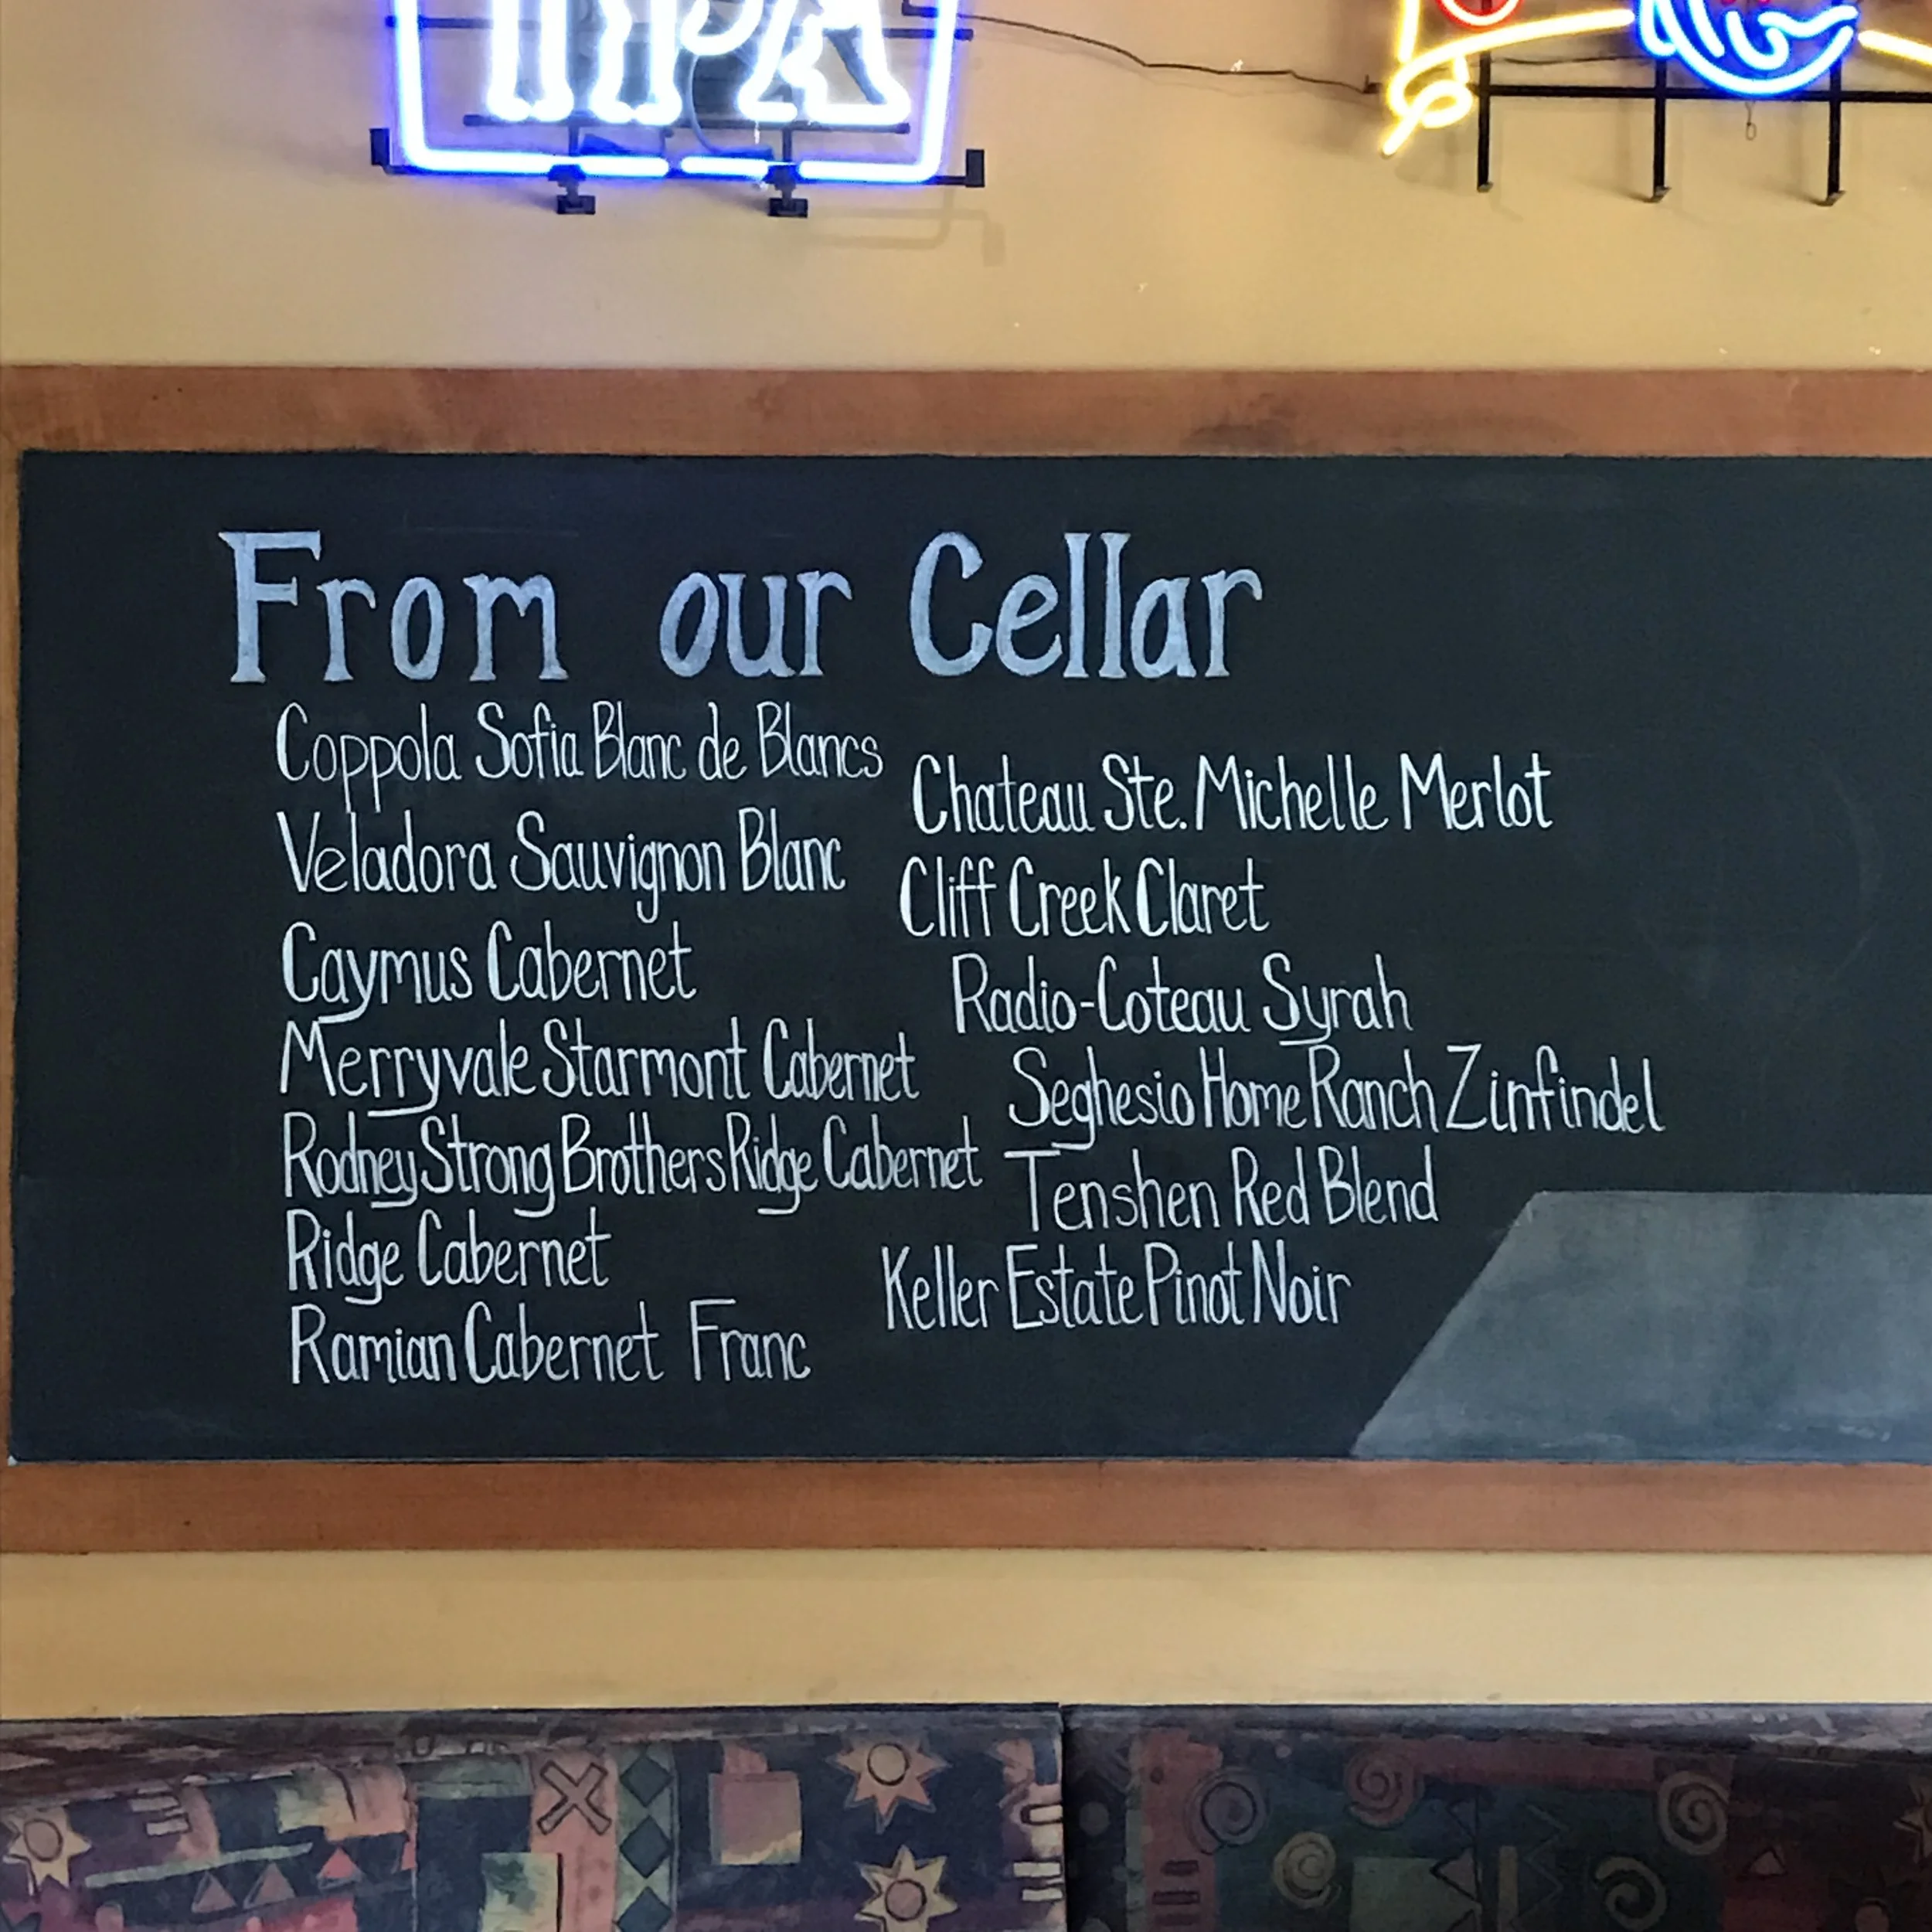 IPA
From our Cellar
Coppola Sofia Blanc de Blancs
Veladora Sauvignon Blanc
Caymus Cabernet
Merryvale Starmont Cabernet
Rodney Strong Brothers Ridge Cabernet
Ridge Cabernet
Ramian Cabernet Franc
Chateau Ste. Michelle Merlot
Cliff Creek Claret
Radio-Coteau Syrah
Seghesio Home Ranch Zinfindel
Tenshen Red Blend
Keller Estate Pinot Noir